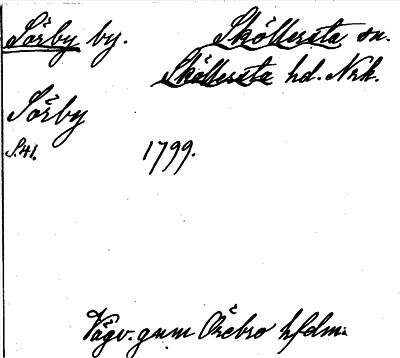 Sörby by. Sköllersta sn.
Sköllersta hd. Nrk.
Sörby
S.41. 1799.
Vägv. gnm Örebro hfdm.